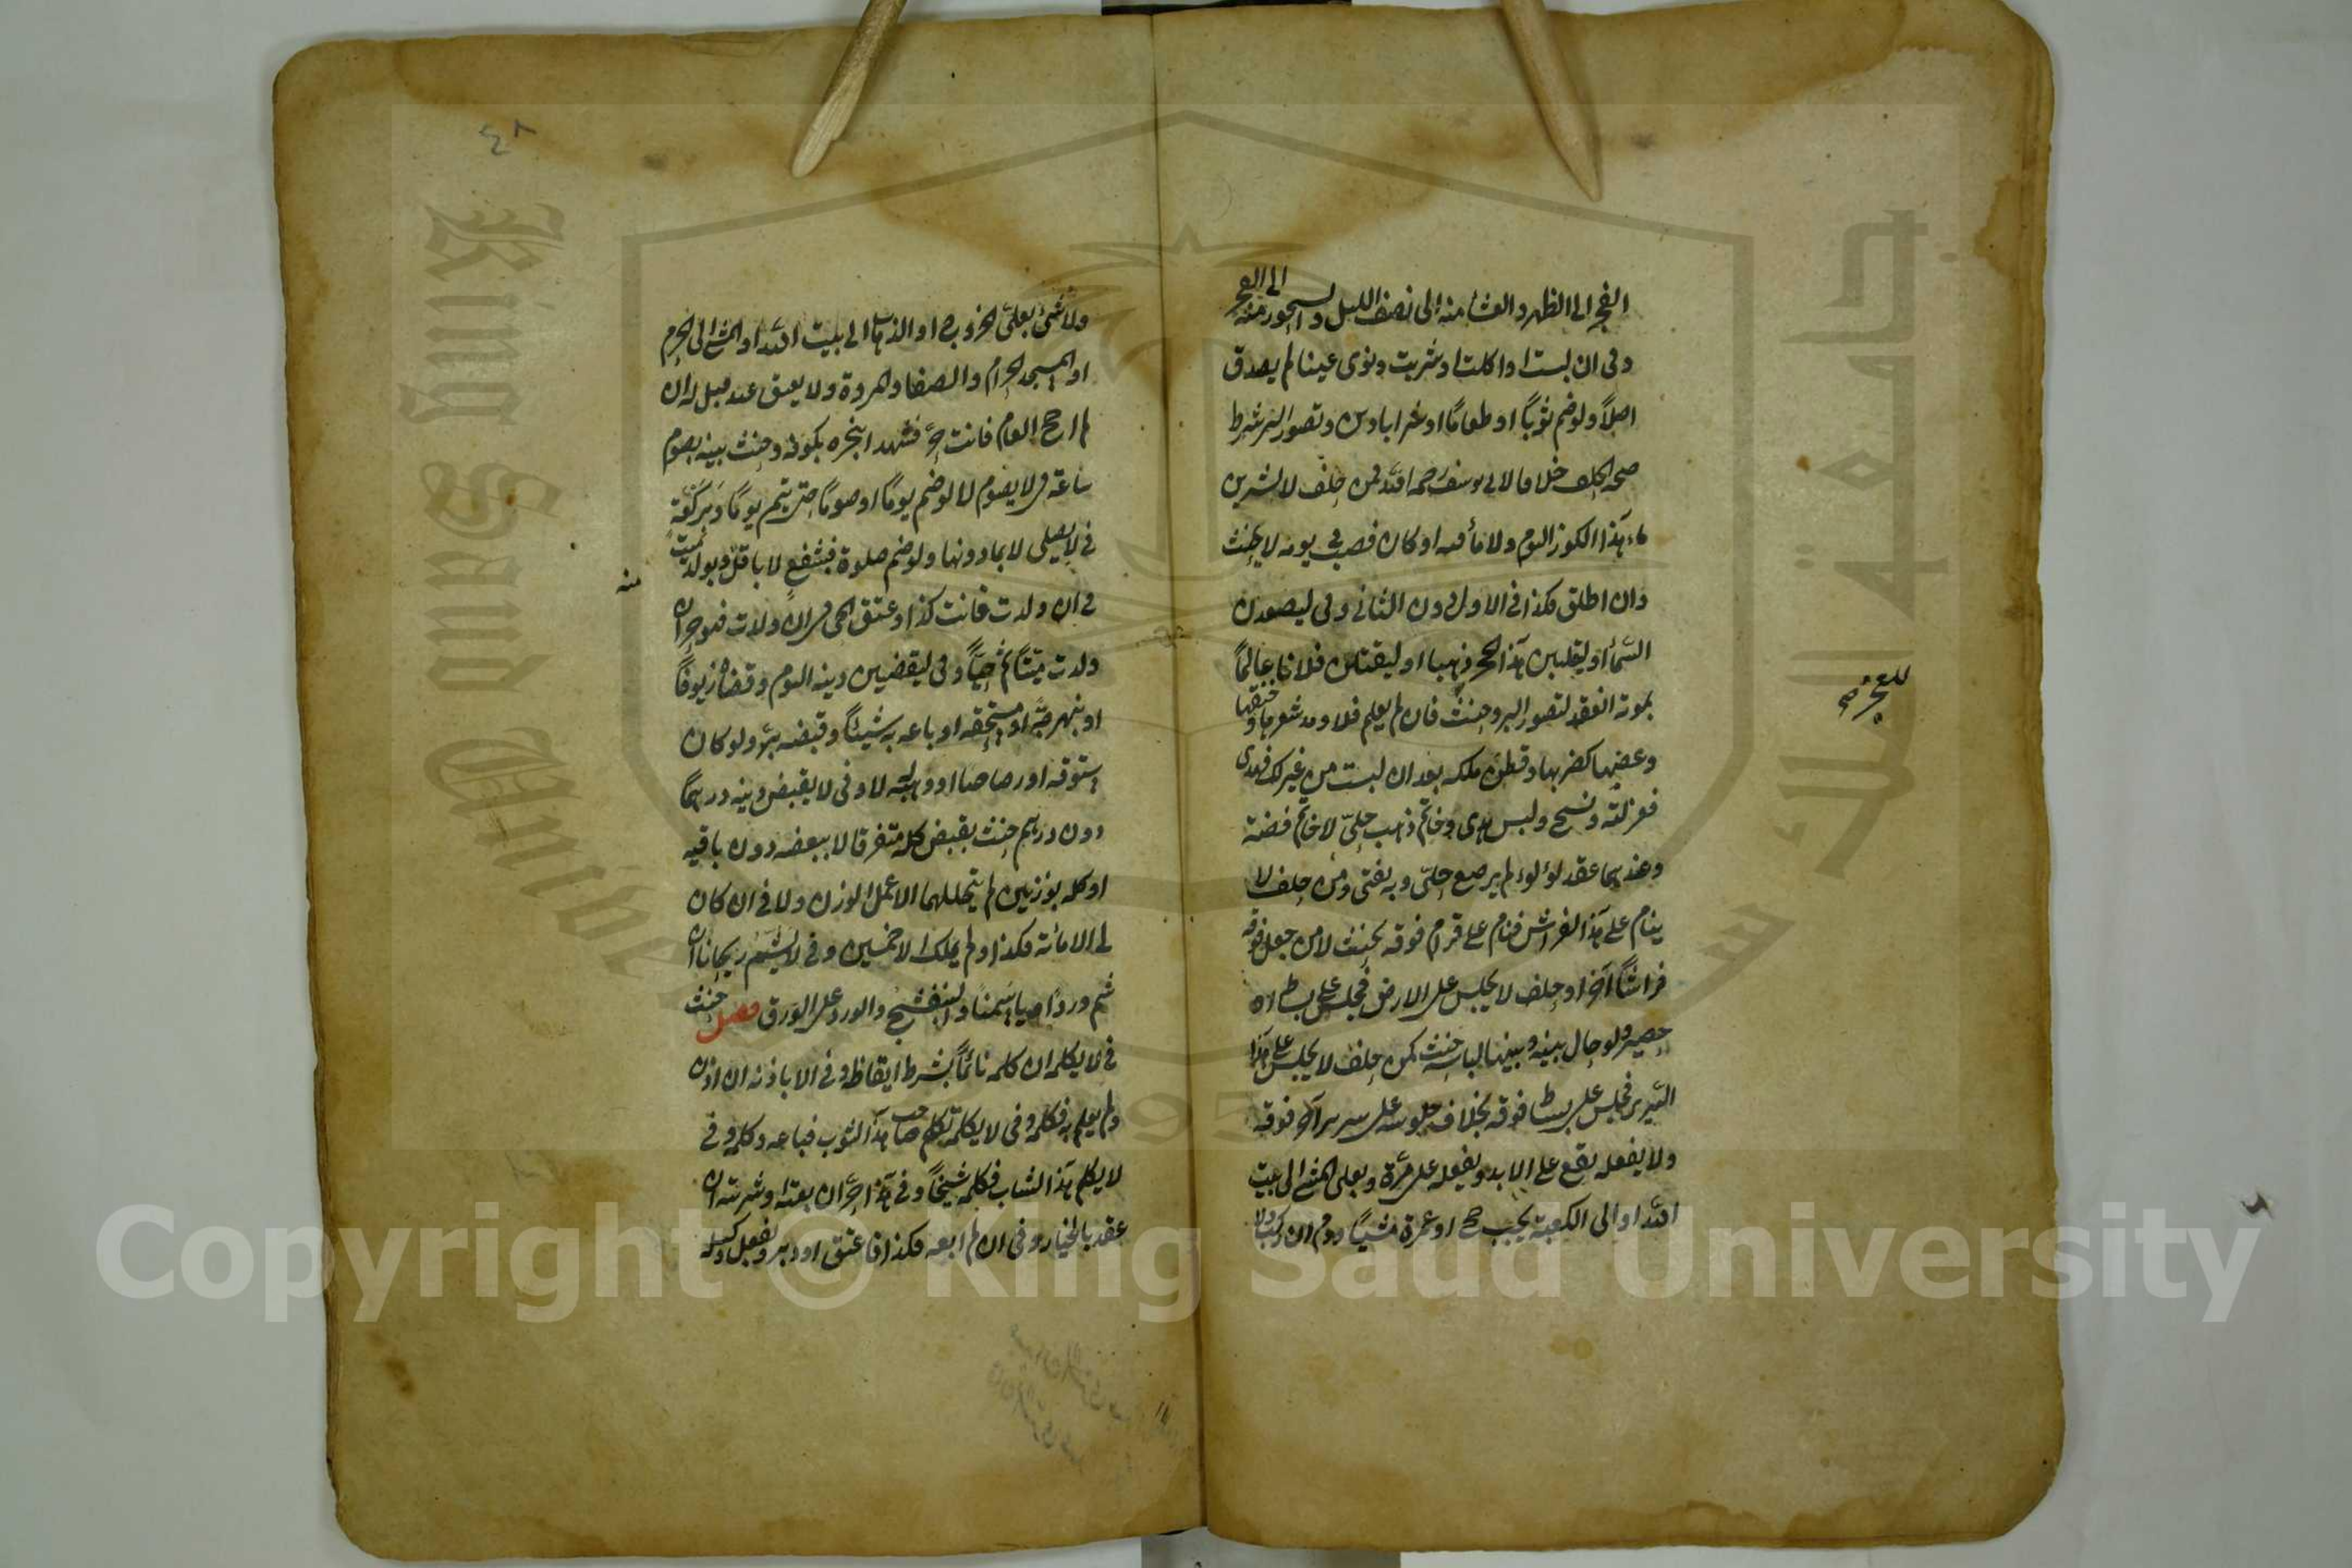 الفجر الى الظهر والعشاء منه الى نصف الليل والسحور منه الى الفجر
وفى ان لبست او اكلت او شربت ونوى عينا لم يصدق
اصلا ولو ضم ثوبًا او طعامًا او شرابا دين وتصور البر شرط
صحة الحلف خلافا لابى يوسف رحمه الله فمن حلف لاشربن
ماء هذا الكوز اليوم ولا ماء فيه او كان فصب فى يومه لا يحنث
وان اطلق فكذا فى الاول دون الثانى وفى ليصعدن
السماء او ليقلبن هذا الحجر ذهبا او ليقتلن فلانا عالمًا
بموته انعقد لتصور البر وحنث فان لم يعلم فلا ومد شعرها وخنقها
وعضها كضربها وقطن ملكه بعد ان لبست من غزلك فهدى
فغزلته ونسج ولبس هدى وخاتم ذهب حلىّ لا خاتم فضة
وعندهما عقد لؤلؤ لم يرصع حلىّ وبه يفتى ومن حلف لا
ينام على هذا الفراش فنام على قرام فوقه يحنث لا من جعل فوقه
فراشًا آخر او حلف لا يجلس على الارض فجلس على بساط او
حصير ولو حال بينه وبينها لباسه حنث كمن حلف لا يجلس على هذا
السرير فجلس على بساط فوقه بخلاف جلوسه على سرير آخر فوقه
ولا يفعله يقع على الابد ويفعله على مرّة وبعلى المشى الى بيت
الله او الى الكعبة يجب حج او عمرة مشيًا ودم ان ركب ولا
ولا شئ بعلىّ الخروج او الذهاب الى بيت الله او المشى الى الحرم
او المسجد الحرام والصفا والمروة ولا يعتق عبد قيل له ان
لم احج العام فانت حرّ فشهد ابنحره بكوفة وحنث بينه بصوم
ساعة فى لا يصوم لا لو ضم يومًا او صومًا حتى يتم يومًا وبركعة
فى لا يصلى لا بما دونها ولو ضم صلوة فبشفع لا باقل وبولد ميت
منه
فى ان ولدت فانت كذا وعتق الحى فى ان ولدت فهو حر ان
ولدت ميتًا ثم حيًّا وفى ليقضين دينه اليوم وقضاه زيوفًا
او بنهرجة او مستحقه او باعه به شيئًا وقبضه برّ ولو كان
ستوقه او رصاصا او وهبه له لا وفى لا يقبض دينه درهمًا
دون درهم حنث بقبض كله متفرقا لا ببعضه دون باقيه
او كله بوزنين لم يتخللهما الا عمل الوزن ولا فى ان كان
لى الا مائة فكذا ولم يملك الا خمسين وفى لا يشم ريحانا ان
شم وردًا وياسمينًا والبنفسج والورد على الورق فصل حنث
فى لا يكلمه ان كلمه نائمًا بشرط ايقاظه وفى الا باذنه ان اذن
ولم يعلم به فكلمه وفى لا يكلم صاحب هذا الثوب فباعه وكلمه وفى
لا يكلم هذا الشاب فكلمه شيخًا وفى هذا حرّ ان بعته او شريته ان
عقد بالخيار وفى ان لم ابعه فكذا فاعتق او دبر وبفعل وكيله
٤٨
Copyright © King Saud University
King Saud University
جامعة الملك سعود